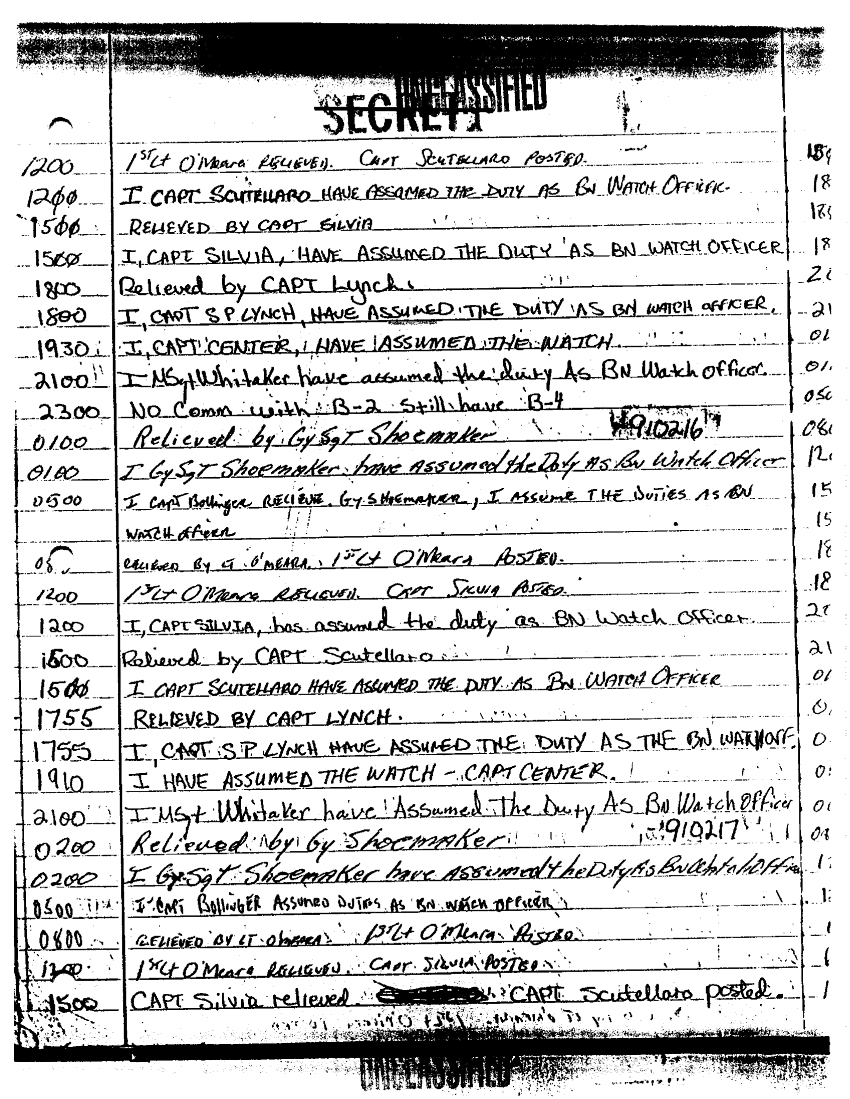 UNCLASSIFIED
SECRET
1200 1st Lt O'Meara RELIEVED. CAPT SCUTELLARO POSTED.
1200 I CAPT SCUTELLARO HAVE ASSUMED THE DUTY AS BN WATCH OFFICER.
1500 RELIEVED BY CAPT SILVIA
1500 I, CAPT SILVIA, HAVE ASSUMED THE DUTY AS BN WATCH OFFICER
1800 Relieved by CAPT Lynch.
1800 I, CAPT S P LYNCH, HAVE ASSUMED THE DUTY AS BN WATCH OFFICER.
1930 I, CAPT CENTER, HAVE ASSUMED THE WATCH.
2100 I MSgt Whitaker have assumed the duty As BN Watch Officer.
2300 No Comm with B-2 Still have B-4
910216
0100 Relieved by GySgT Shoemaker
0100 I GySgT Shoemaker have Assumed the Duty As Bn Watch Officer
0500 I CAPT Bollinger RELIEVE GY SHOEMAKER, I ASSUME THE DUTIES AS BN
WATCH OFFICER
RELIEVED BY LT O'MEARA. 1st Lt O'Meara POSTED.
1200 1st Lt O'Meara RELIEVED. CAPT SILVIA POSTED.
1200 I, CAPT SILVIA, has assumed the duty as BN Watch Officer.
1500 Relieved by CAPT Scutellaro
1500 I CAPT SCUTELLARO HAVE ASSUMED THE DUTY AS BN WATCH OFFICER
1755 RELIEVED BY CAPT LYNCH.
1755 I, CAPT S P LYNCH HAVE ASSUMED THE DUTY AS THE BN WATCH OFF.
1910 I HAVE ASSUMED THE WATCH - CAPT CENTER.
2100 I MSgt Whitaker have Assumed The Duty As BN Watch Officer
910217
0200 Relieved by Gy Shoemaker
0200 I GySgT Shoemaker have Assumed the Duty As Bn Watch Offi
0500 I CAPT BOLLINGER ASSUMED DUTIES AS BN WATCH OFFICER
0800 RELIEVED BY LT O'MEARA. 1st Lt O'Meara POSTED.
1200 1st Lt O'Meara RELIEVED. CAPT SILVIA POSTED.
1500 CAPT Silvia relieved CAPT Scutellaro posted.
UNCLASSIFIED